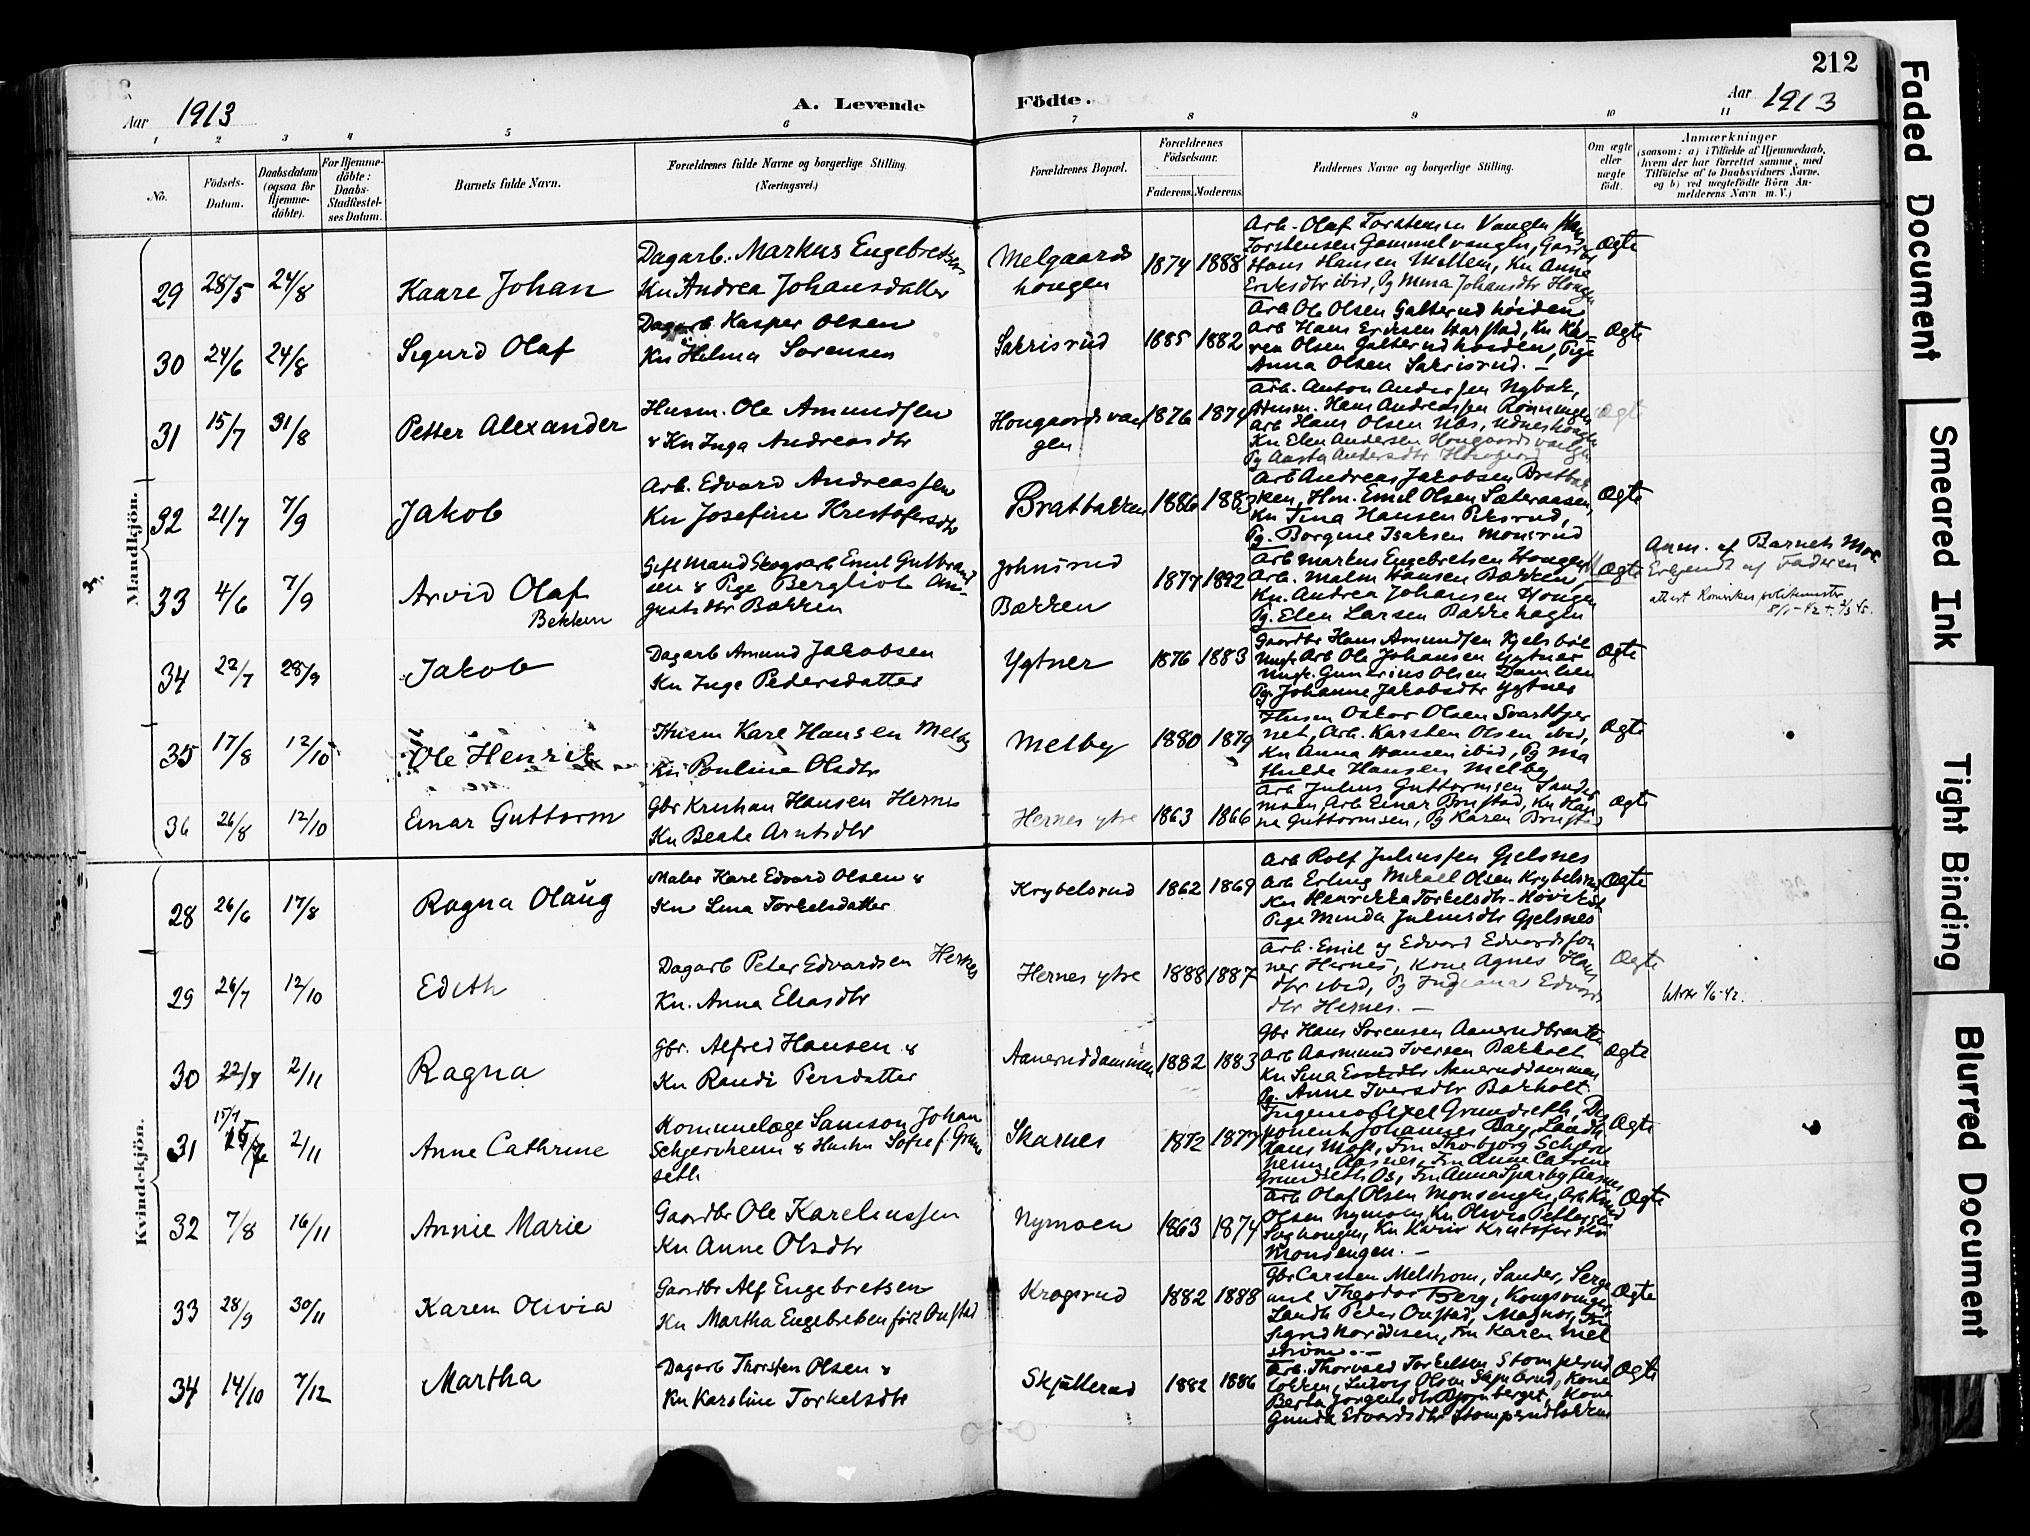 212
Aar 1913
A. Levende
Födte.
Aar 1913
1 2 3 4 5 6 7 8 9 10 11
No.
Födsels-Datum.
Daabsdatum (ogsaa for Hjemme-döbte).
For Hjemme-döbte: Daabs-Stadfæstel-ses Datum.
Barnets fulde Navn.
Forældrenes fulde Navne og borgerlige Stilling.
(Næringsvei.)
Forældrenes Bopæl.
Forældrenes Födselsaar.
Faderens. Moderens.
Faddernes Navne og borgerlige Stilling.
Om ægte eller uægte födt.
Anmærkninger
(saasom: a) i Tilfælde af Hjemmedaab,
hvem der har forrettet samme, med
Tilföielse af to Daabsvidners Navne,
og b) ved uægtefödte Börn An-
melderens Navn m. V.)
Mandkjön.
29 28/5 24/8 Kaare Johan
Dagarb. Markus Engebretsen
Kn Andrea Johansdatter
Melgaards
hougen
1874 1888
Arb. Olaf Torstensen Vangen
Torstensen Gammelvangen,
Hans Hansen Moltem, Kn Anna
Eriksdtr ibid, Pg Mina Johansdtr Hougen
Ægte
30 24/6 24/8 Sigurd Olaf
Dagarb Kasper Olsen
Kn Helma Sorensen
Sakrisrud
1885 1882
Arb Ole Olsen Galterudhoiden
Arb Hans Eriksen Harstad, Kn Ka-
ren Olsen Galterudhoiden, Pige
Anna Olsen Sakrisrud. —
Ægte
31 15/7 31/8 Petter Alexander
Husm. Ole Amundsen
& Kn Inga Andreasdtr
Hougaardsvan
gen
1876 1874
Arb. Anton Andersen Nybak,
Husm. Hans Andreassen Rønningen
Arb Hans Olsen Næs,
Kn Elen Andersen Hougaardsvangen
Pg Aasta Andersdtr
Ægte
32 21/7 7/9 Jakob
Arb. Edvard Andreassen
Kn Josefine Kristofersdtr
Bratbakken
1886 1883
Arb Andreas Jakobsen Bratbak
ken, Hm. Emil Olsen Sæteraasen,
Kn Tina Hansen Piksrud,
Pg. Borgine Isaksen Monsrud
Ægte
33 4/6 7/9 Arvid Olaf
Bekken
Gift Mand Skogsarb Emil Gulbrand
sen & Pige Bergliot Au-
gustsdtr Bakken
Johnsrud
Bækken
1877 1892
Arb Markus Engebretsen Hougen
Arb. Malm Hansen Bækken
Kn. Andrea Johansen Hougen
Pg. Elen Larsen Bakkehagen
Uægte
Anm. af Barnets Mor
Erkjendt af Faderen
34 22/7 28/9 Jakob
Dagarb Amund Jakobsen
Kn Inge Pedersdatter
Ygtner
1876 1883
Gaardbr Hans Amundsen Kjelsbøl
Ungk Arb Ole Johansen Ygtner
Ungk. Gunerius Olsen Damlien
Pg. Johanne Jakobsdtr Ygtner
Ægte
35 17/8 12/10 Ole Henrik
Husm Karl Hansen Melby
Kn Pouline Olsdtr
Melby
1880 1879
Husm Oskar Olsen Svartbjer
net, Arb. Karsten Olsen ibid,
Kn Anna Hansen ibid, Pg Ma
thilde Hansen Melby
Ægte
36 26/8 12/10 Einar Guttorm
Gbr Kristian Hansen Hernes
Kn Beate Arntsdtr
Hernes ytre
1863 1866
Arb Julius Guttormsen Sander
moen, Arb Einar Brustad, Kn Han
na Guttormsen, Pg Karen Brustad
Ægte
Kvindekjön.
28 26/6 17/8 Ragna Olaug
Maler Karl Edvard Olsen &
Kn Lina Torkelsdatter
Krybelsrud
1862 1869
Arb Rolf Juliussen Gjelsnes
Arb Erling Mikael Olsen Krybelsrud
Kn Henrikka Torkelsdtr
Pige Minda Juliusdtr Gjelsnes
Ægte
29 26/7 12/10 Edith
Dagarb Peter Edvardsen Hernes
Kn. Anna Eliasdtr
Hernes ytre
1888 1887
Arb. Emil og Edvard Edvardsson
ner Hernes, Kone Agnes Hans
dtr ibid, Pg Indiana Edvards
dtr Hernes. —
Ægte
30 22/8 2/11 Ragna
Gbr. Alfred Hansen &
Kn Randi Persdatter
Aaneruddammen
1882 1883
Gbr Hans Sorensen Aanerudbraaten
Arb Aasmund Iversen Bækholt
Kn Lina Aaneruddammen
Pg. Anne Iversdtr Bækholt.
Ægte
31 15/7 2/11 Anne Cathrine
Kommunelæge Samson Johan
Schjerverheim & Hustru Sofie f. Grund
seth
Skarnes
1872 1877
Ingeniør Axel Grundseth, Dis
ponent Johannes Dag, Landh
Hans Moft, Fru Thorbjörg Schjerv
heim, Aasnes, Fru Anne Catrine
Grundseth Os, Fru Anna Sparby Aasnes
Ægte
32 7/8 16/11 Annie Marie
Gaardbr Ole Kareliussen
Kn Anne Olsdtr
Nymoen
1863 1874
Arb Olaf Olsen Monsengen, Arb Knud
Olsen Nymoen, Kn Olivia Pettersen
Monsengen. —
Ægte
33 28/9 30/11 Karen Olivia
Gaardbr Alf Engebretsen
Kn Martha Engebretsen född Onstad
Krogsrud
1882 1888
Gbr Carsten Melstrom, Sander, Serge
ant Theodor Berg, Kongsvinger,
Landh Peder Onstad, Magnor, Fru
Sigrid Norddisen, Fru Karen Mel
ström. —
Ægte
34 14/10 7/12 Martha
Dagarb Thorsten Olsen &
Kn Karoline Torkelsdtr
Skjullerud
1882 1886
Arb. Thorvald Torkelsen Stomperud
lokken, Ludvig Olsen Kone
Berta Jorgensdtr Bjornberget, Kone
Gunda Edvardsdtr Stomperudlokken
Ægte
Faded Document
Smeared Ink
Tight Binding
Blurred Document